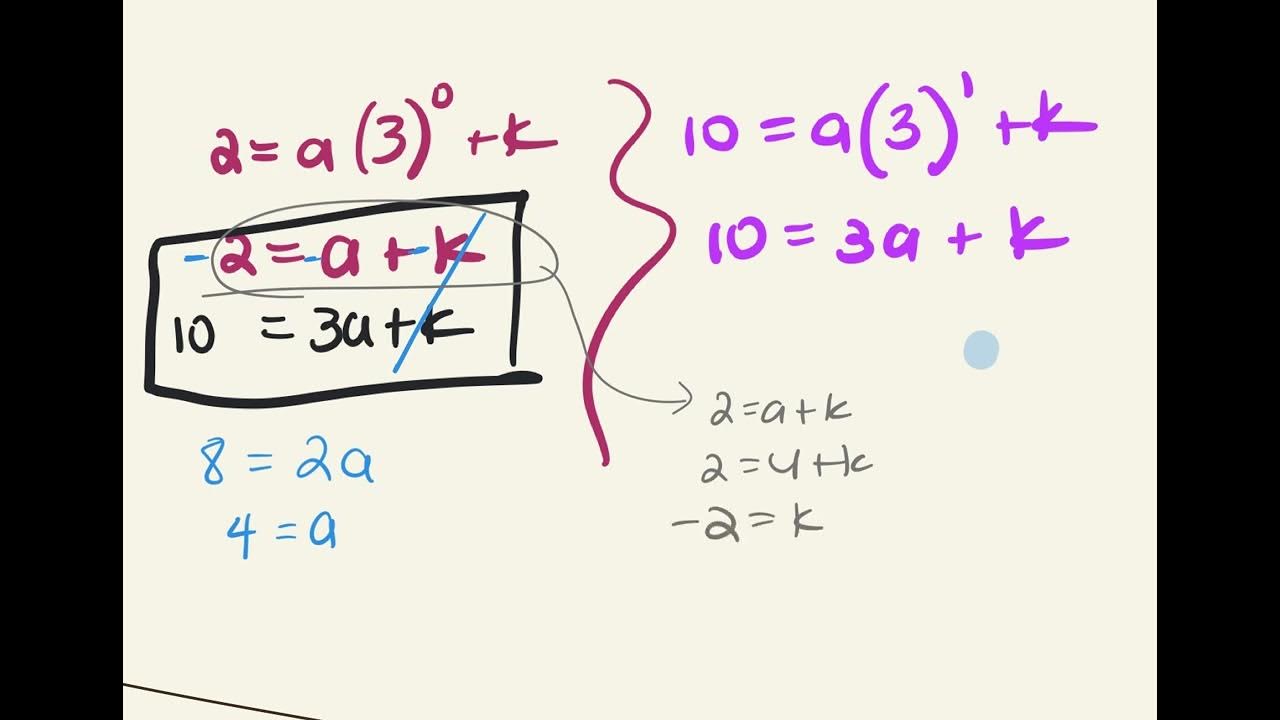 2 = a(3)⁰ + k
- 2 = - a + - k
10 = 3a + k
8 = 2a
4 = a
10 = a(3)¹ + k
10 = 3a + k
2 = a + k
2 = 4 + k
-2 = k